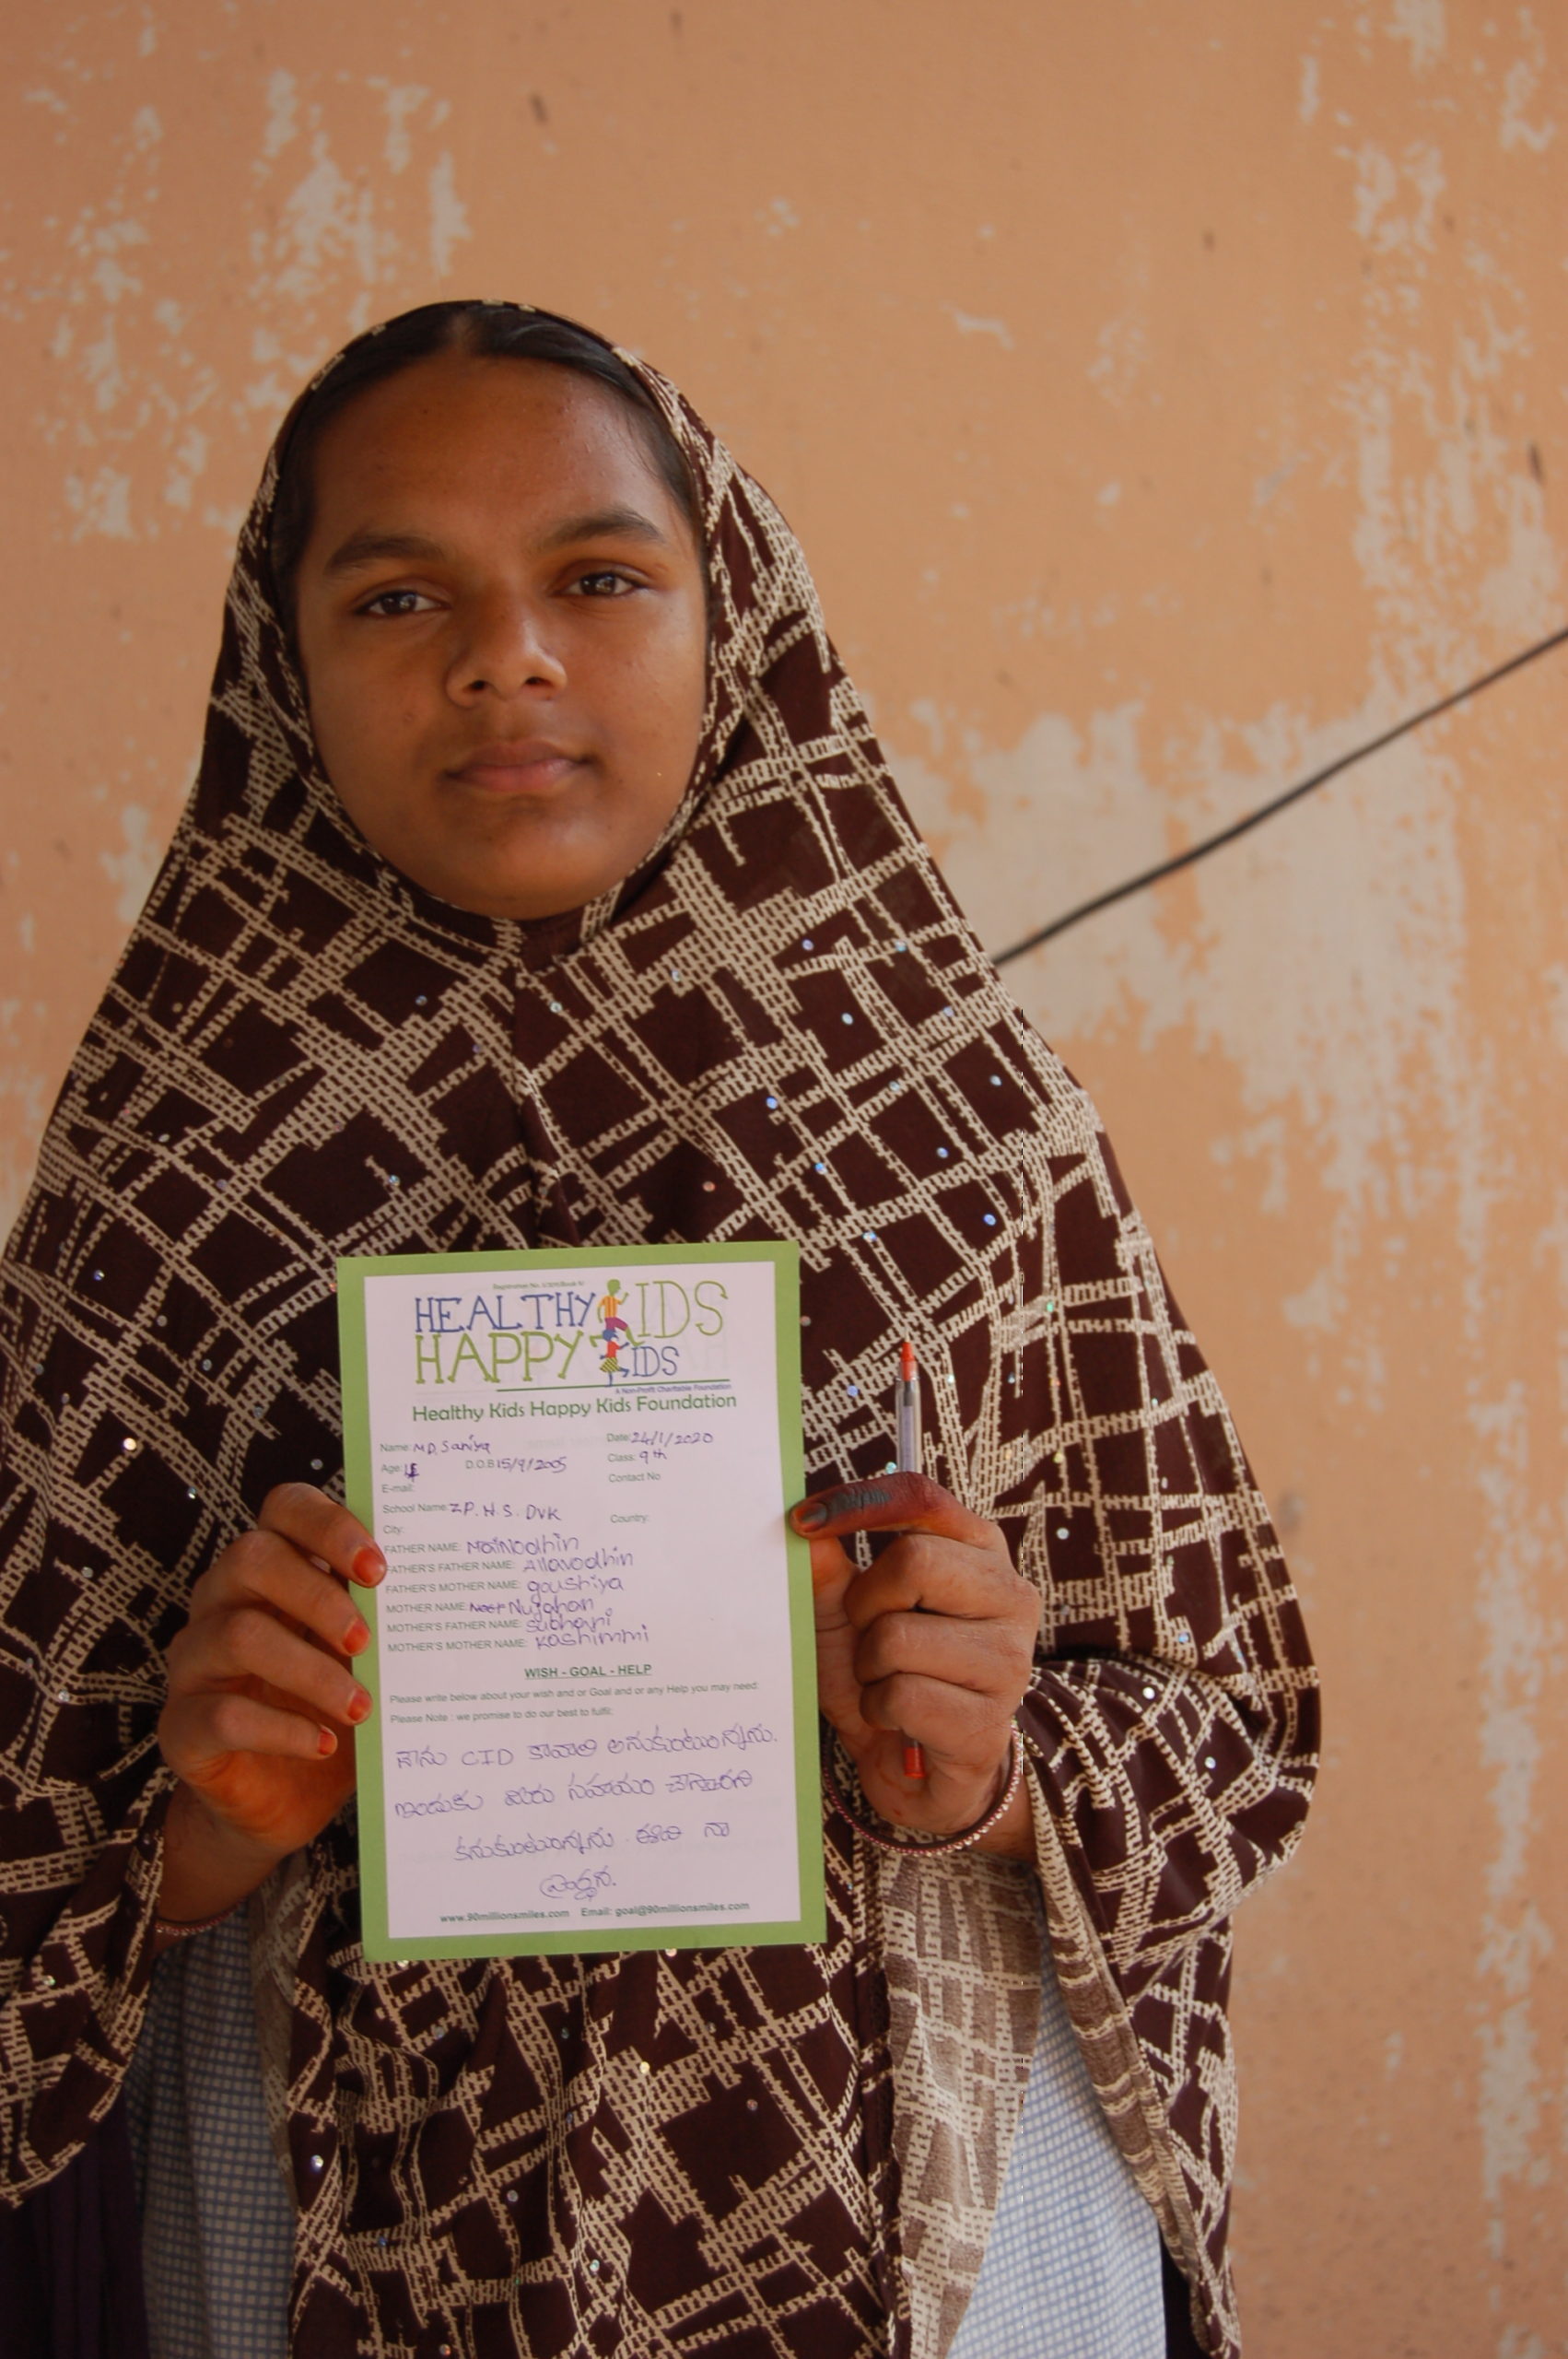 HEALTHY KIDS
HAPPY KIDS
A Non-Profit Charitable Foundation
Healthy Kids Happy Kids Foundation
Name: MD. Saniya Date: 24/1/2020
Age: D.O.B 15/9/2005 Class: 9th
E-mail: Contact No
School Name: Z.P.H.S. DVK
City: Country:
FATHER NAME: Mainodhin
FATHER'S FATHER NAME: Allavodhin
FATHER'S MOTHER NAME: goushiya
MOTHER NAME: Nujahan
MOTHER'S FATHER NAME: Subhani
MOTHER'S MOTHER NAME: Kashimmi
WISH - GOAL - HELP
Please write below about your wish and or Goal and or any Help you may need:
Please Note : we promise to do our best to fulfil:
నాను CID కావాలి అనుకుంటున్నాను.
ఇందుకు మీరు సహాయం చేస్తారని
కనుకుంటున్నాను ఈది నా
ప్రార్థన.
www.90millionsmiles.com Email: goal@90millionsmiles.com